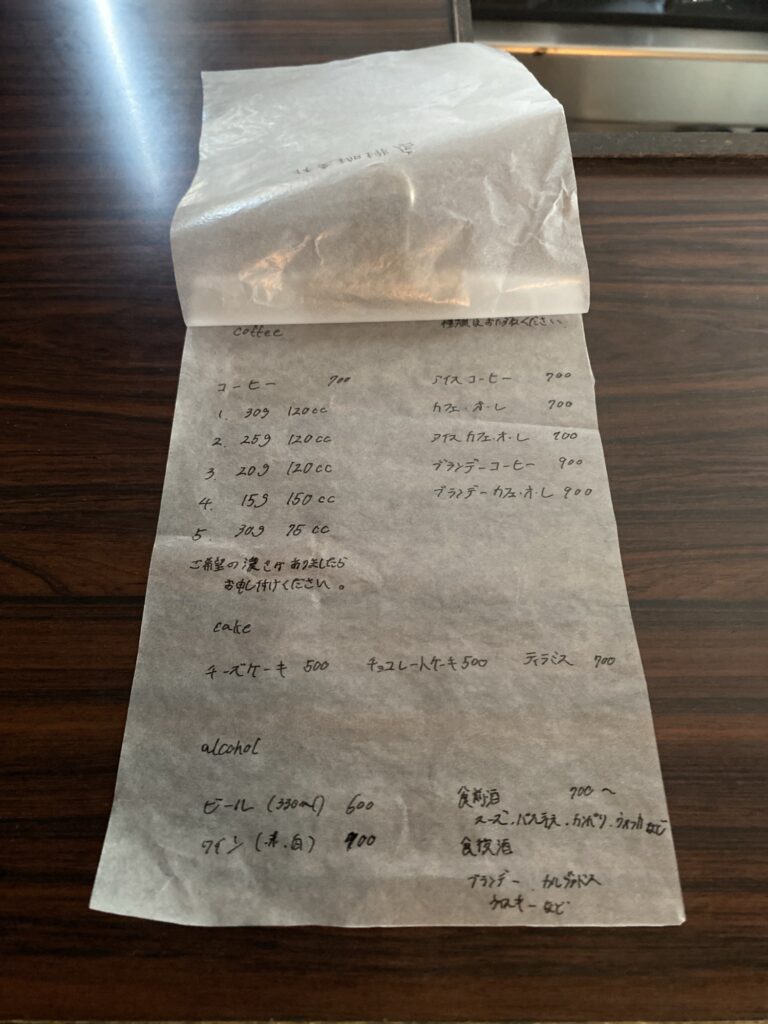 coffee
種類はおたずねください。
コーヒー 700
1. 30g 120cc
2. 25g 120cc
3. 20g 120cc
4. 15g 150cc
5. 30g 75cc
ご希望の濃さがありましたら
お申し付けください。
アイスコーヒー 700
カフェ・オ・レ 700
アイスカフェ・オ・レ 700
ブランデーコーヒー 900
ブランデーカフェ・オ・レ 900
cake
チーズケーキ 500 チョコレートケーキ 500 ティラミス 700
alcohol
ビール (330ml) 600
ワイン (赤・白)
食前酒 700〜
スーズ、パスティス、カンパリ、ウォッカなど
食後酒
ブランデー、カルヴァドス
ウィスキーなど